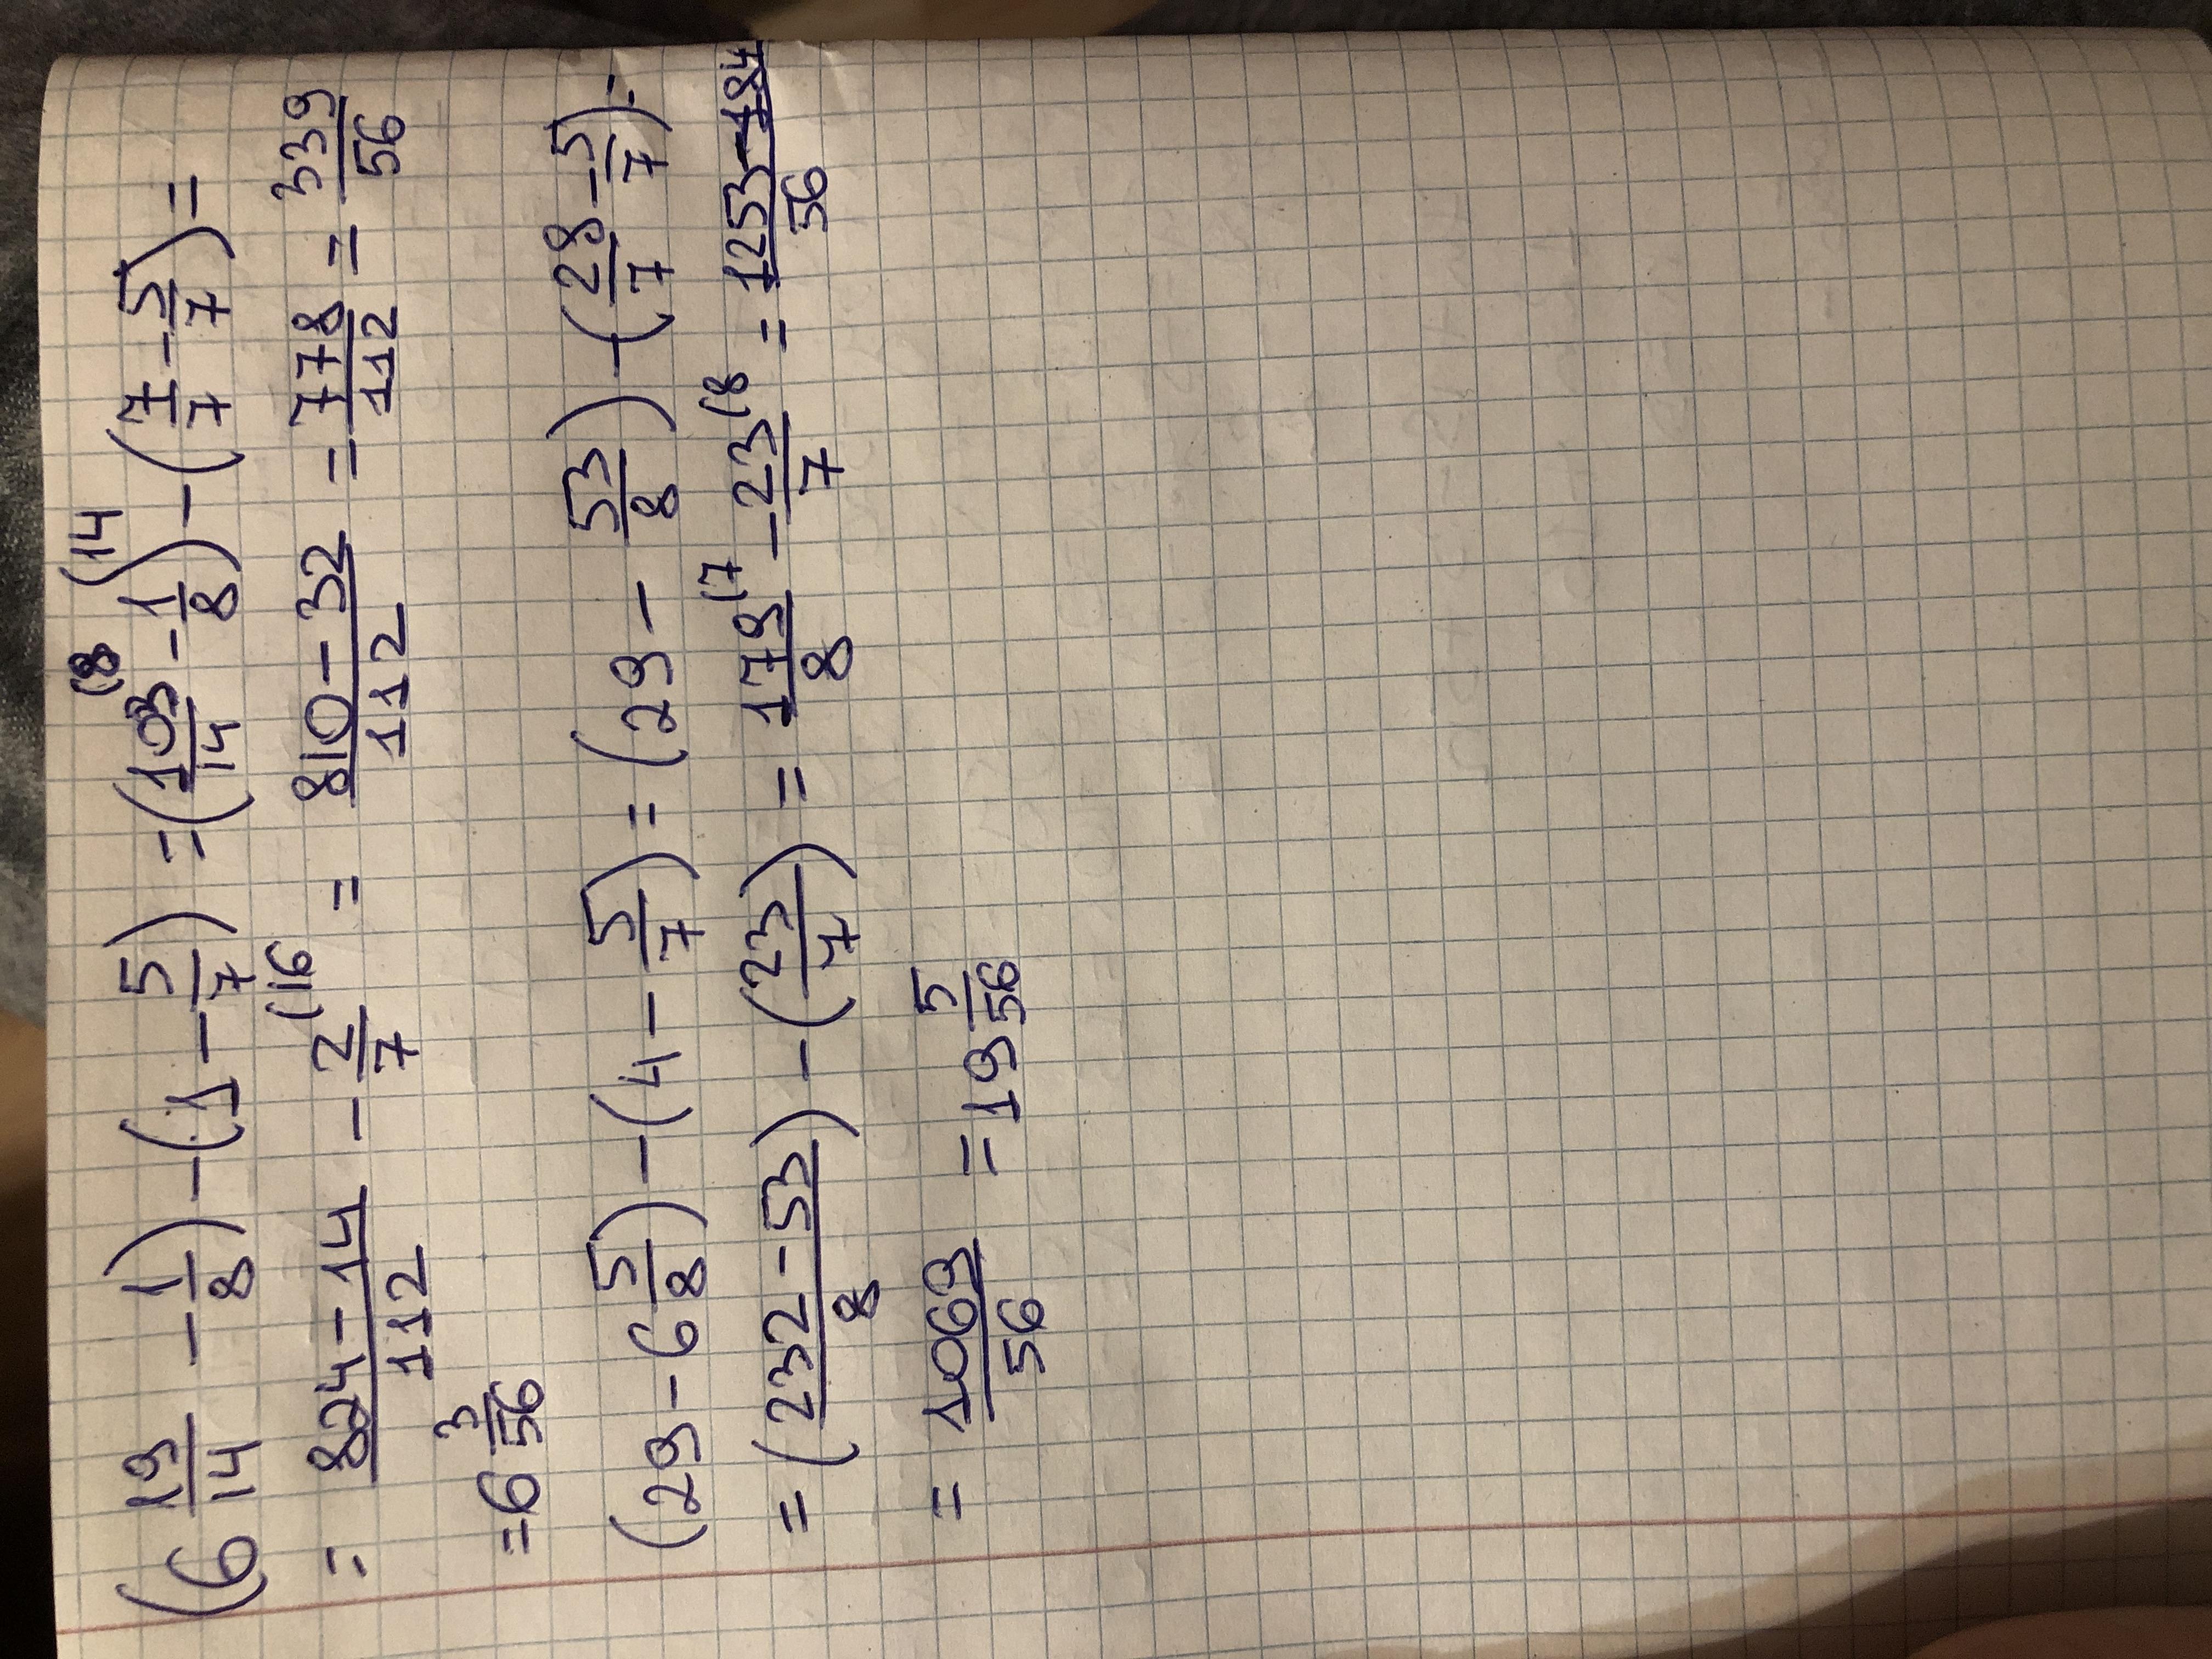 (6 19/14 - 1/8) - (1 - 5/7) = (103/14 (8 - 1/8 (14) - (7/7 - 5/7) =
= 824-14/112 - 2/7 (16 = 810-32/112 = 778/112 = 339/56
= 6 3/56
(29 - 6 5/8) - (4 - 5/7) = (29 - 53/8) - (28/7 - 5/7) =
= (232-53/8) - (23/7) = 179/8 (7 - 23/7 (8 = 1253-184/56
= 1069/56 = 19 5/56